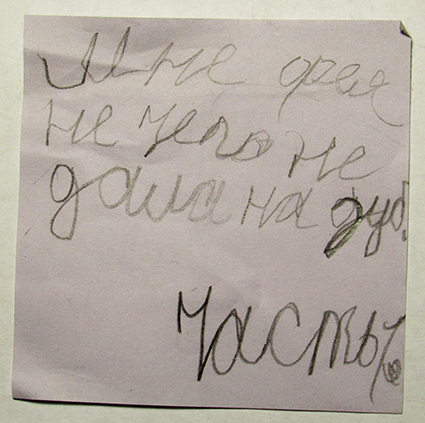 Мне фее
не чего не
дала на зуб.
Часть 1.